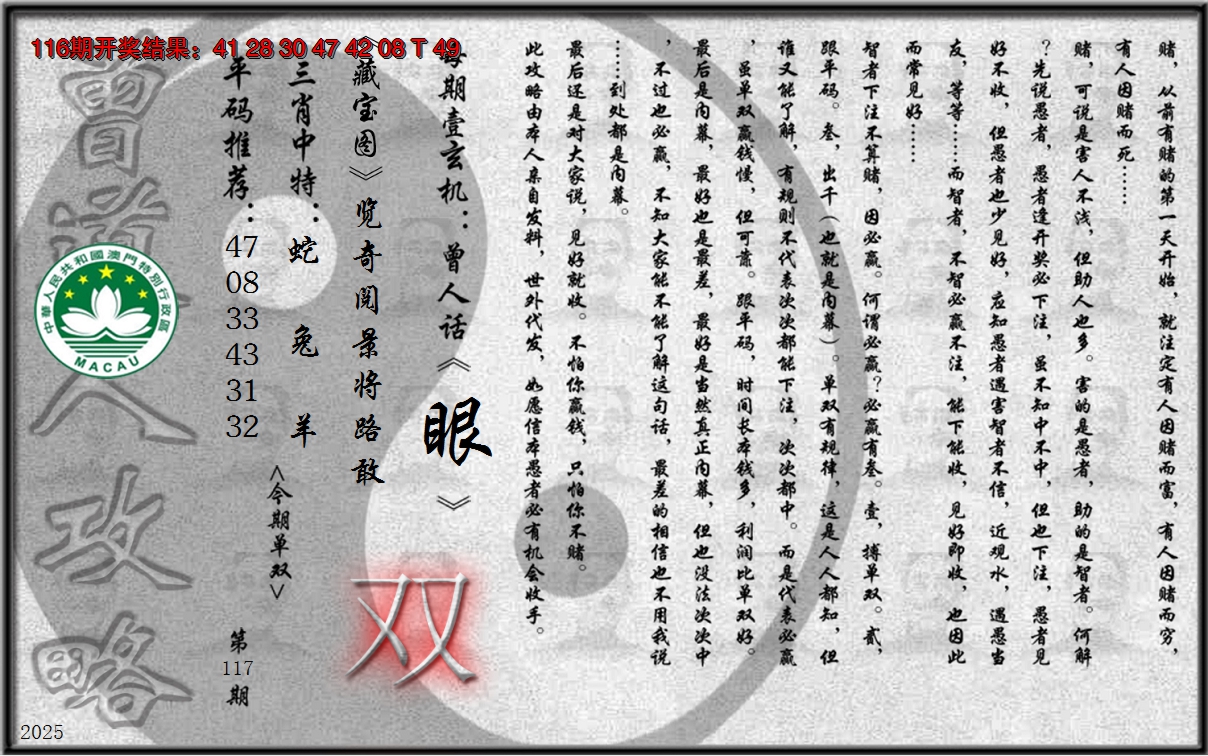 116期开奖结果：41 28 30 47 42 08 T 49
赌，从前有赌的第一天开始，就注定有人因赌而富，有人因赌而穷，
有人因赌而死……
赌，可说是害人不浅，但助人也多。害的是愚者，助的是智者。何解
？先说愚者，愚者逢开奖必下注，虽不知中不中，但也下注，愚者见
好不收，但愚者也少见好，应知愚者遇害智者不信，近观水，遇愚当
友，等等……而智者，不智必赢不注，能下能收，见好即收，也因此
而常见好……
智者下注不算赌，因必赢。何谓必赢？必赢有叁。壹，搏单双。贰，
跟平码。叁，出千（也就是内幕）。单双有规律，这是人人都知，但
谁又能了解，有规则不代表次次都能下注，次次都中。而是代表必赢
，虽单双赢钱慢，但可靠。跟平码，时间长本钱多，利润比单双好。
最后是内幕，最好也是最差，最好是当然真正内幕，但也没法次次中
，不过也必赢，不知大家能不能了解这句话，最差的相信也不用我说
……到处都是内幕。
最后还是对大家说，见好就收。不怕你赢钱，只怕你不赌。
此攻略由本人亲自发料，世外代发，如愿信本愚者必有机会收手。
每期壹玄机：曾人话《眼》
《藏宝图》览奇阅景将路敢
双
三肖中特：蛇 兔 羊
<今期单双>
平码推荐：47 08 33 43 31 32
第117期
曾道人攻略
中華人民共和國澳門特別行政區
MACAU
2025